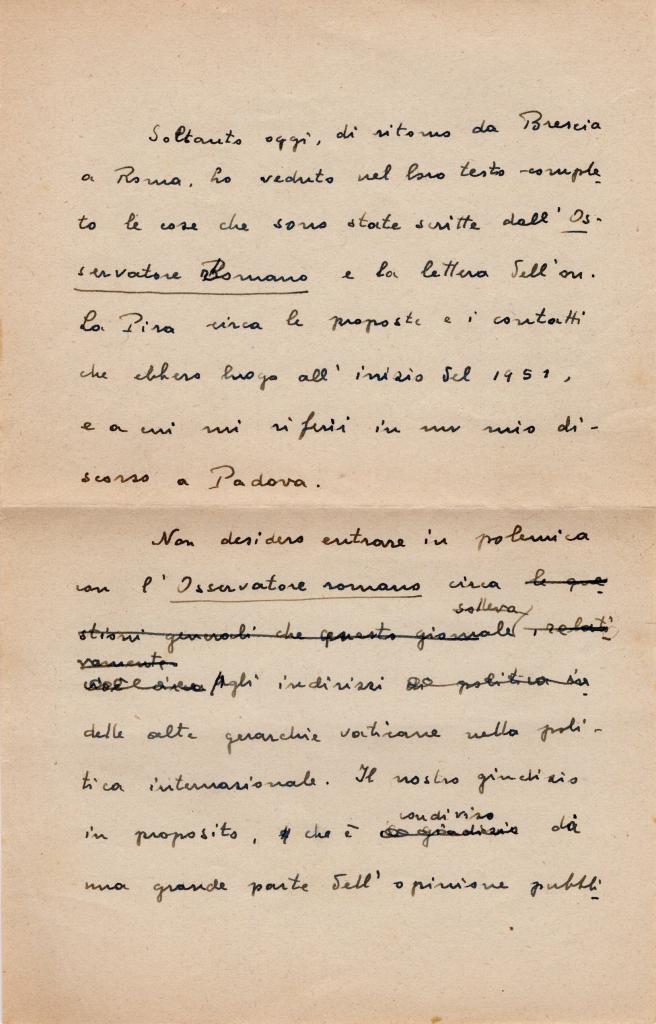 Soltanto oggi, di ritorno da Brescia
a Roma, ho veduto nel loro testo comple
to le cose che sono state scritte dall'Os-
servatore Romano e la lettera dell'on.
La Pira circa le proposte e i contatti
che ebbero luogo all'inizio del 1951,
e a cui mi riferii in un mio di-
scorso a Padova.
Non desidero entrare in polemica
con l'Osservatore romano circa le que
solleva,
stioni generali che questo giornale, relati
vamente
agli indirizzi di politica in
delle alte gerarchie vaticane nella poli-
tica internazionale. Il nostro giudizio
condiviso
in proposito, che è giudizio da
una grande parte dell'opinione pubbli